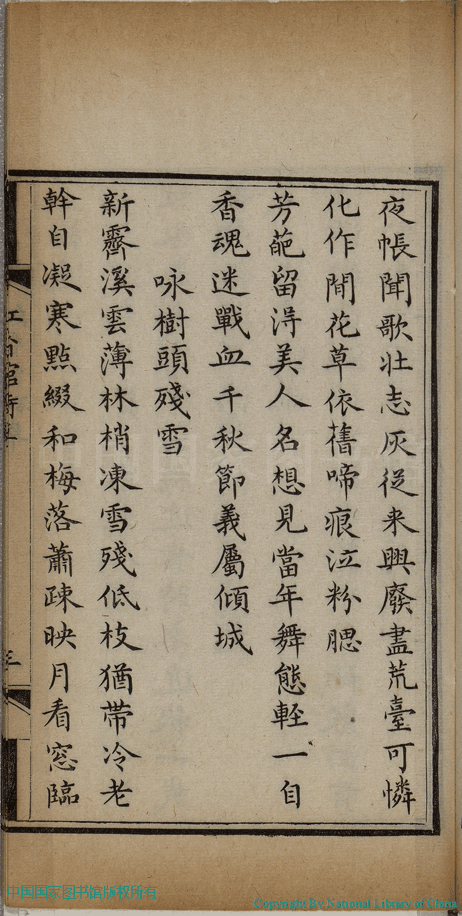 夜帳聞歌壯志灰從来興廢盡荒臺可憐
化作閒花草依舊啼痕泣粉腮
芳葩留淂美人名想見當年舞態輊一自
香魂迷戰血千秋節義屬傾城
咏樹頭殘雪
新霽溪雲薄林梢凍雪殘低枝猶带冷老
幹自凝寒點綴和梅落蕭疎映月看窓臨
三
中国国家图书馆版权所有
Copyright By National Library of China